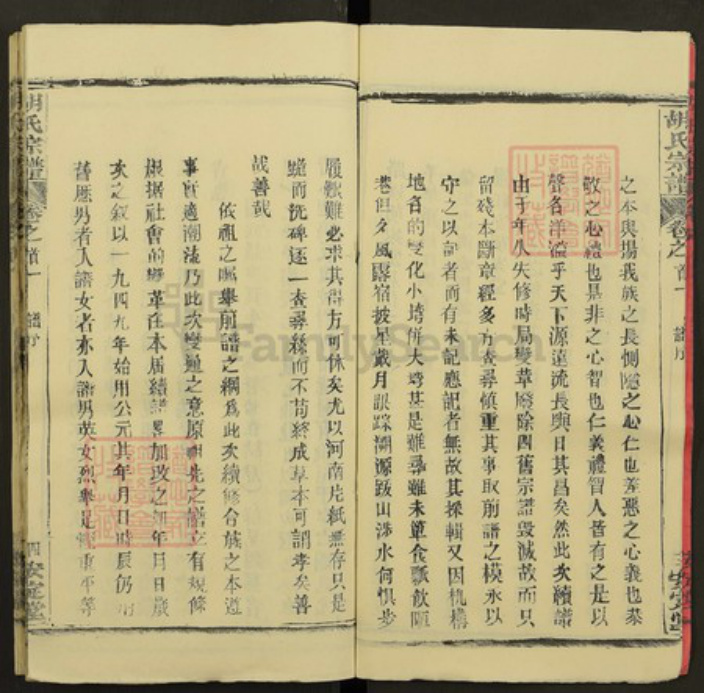 胡氏宗譜 卷之首一 譜序
之本與揚我族之長惻隱之心仁也羞惡之心義也恭
敬之心禮也是非之心智也仁義禮智人皆有之是以
聲名洋溢乎天下源遠流長與日其昌矣然此次續譜
由于年久失修時局變革廢除四舊宗譜毀滅故而只
留殘本斷章經多方查尋慎重其事取前譜之模永以
守之以記者而有未記應記者無故其採輯又因機構
地名的變化小塆併大塆甚是難尋雖未簞食瓢飲陋
巷但夕風露宿披星戴月跟踪溯源跋山涉水何惧步
履艱難必求其得方可休矣尤以河南片紙無存只是
蹠而洗碑逐一查尋絲而不苟終成草本可謂孝矣善
哉善哉
依祖之囑舉前譜之綱爲此次續修合族之本遵
事宜適潮流乃此次變通之意原朝先之譜立有規條
根据社會的變革在本届續譜畧加改之如年日日歲
次之叙以一九四九年始用公元其年月日時辰仍用
舊歷男者入譜女者亦入譜男英女烈舉是 重平等
四 安定堂
胡氏宗譜 卷之首一 譜序
安定堂
FamilySearch